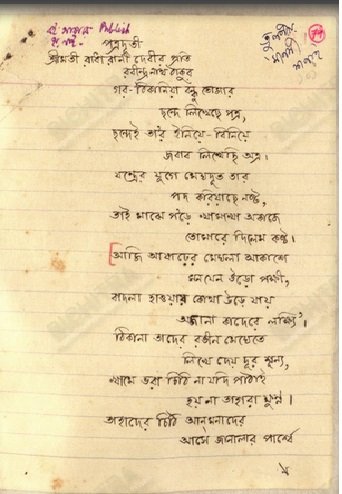 Publish
পত্রদূতী-
শ্রীমতী রাধারাণী দেবীর প্রতি
রবীন্দ্রনাথ ঠাকুর
গর-ঠিকানিয়া বন্ধু তোমার
ছন্দে লিখেছে পত্র,
ছন্দেই তার ইনিয়ে-বিনিয়ে
জবাব লিখেছি অত্র।
যক্ষের যুগে মেঘদূত তার
পদ করিয়াছে নষ্ট,
তাই মাঝে প'ড়ে খামখা অকাজে
তোমারে দিলেম কষ্ট।
[আজি আষাঢ়ের মেঘলা আকাশে
মন যেন উড়ো পক্ষী,
বাদলা হাওয়ায় কোথা উড়ে যায়
অজানা কাদেরে লক্ষ্যি'।
ঠিকানা তাদের রঙীন মেঘেতে
লিখে দেয় দূর শূন্য,
খামে ভরা চিঠি না যদি পাঠাই
হয় না তাহারা ক্ষুণ্ণ।
তাহাদের চিঠি আনমনাদের
আসে জানালার পার্শ্বে